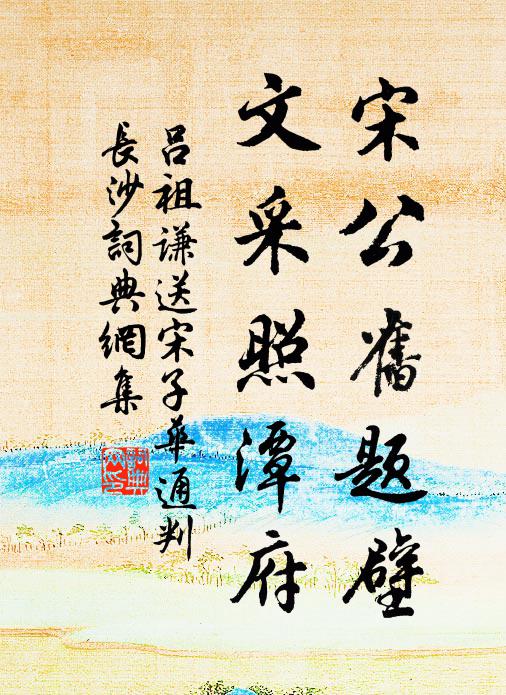 宋公舊題壁
文采照潭府
呂祖謙送宋子華通判
長沙詞典網集